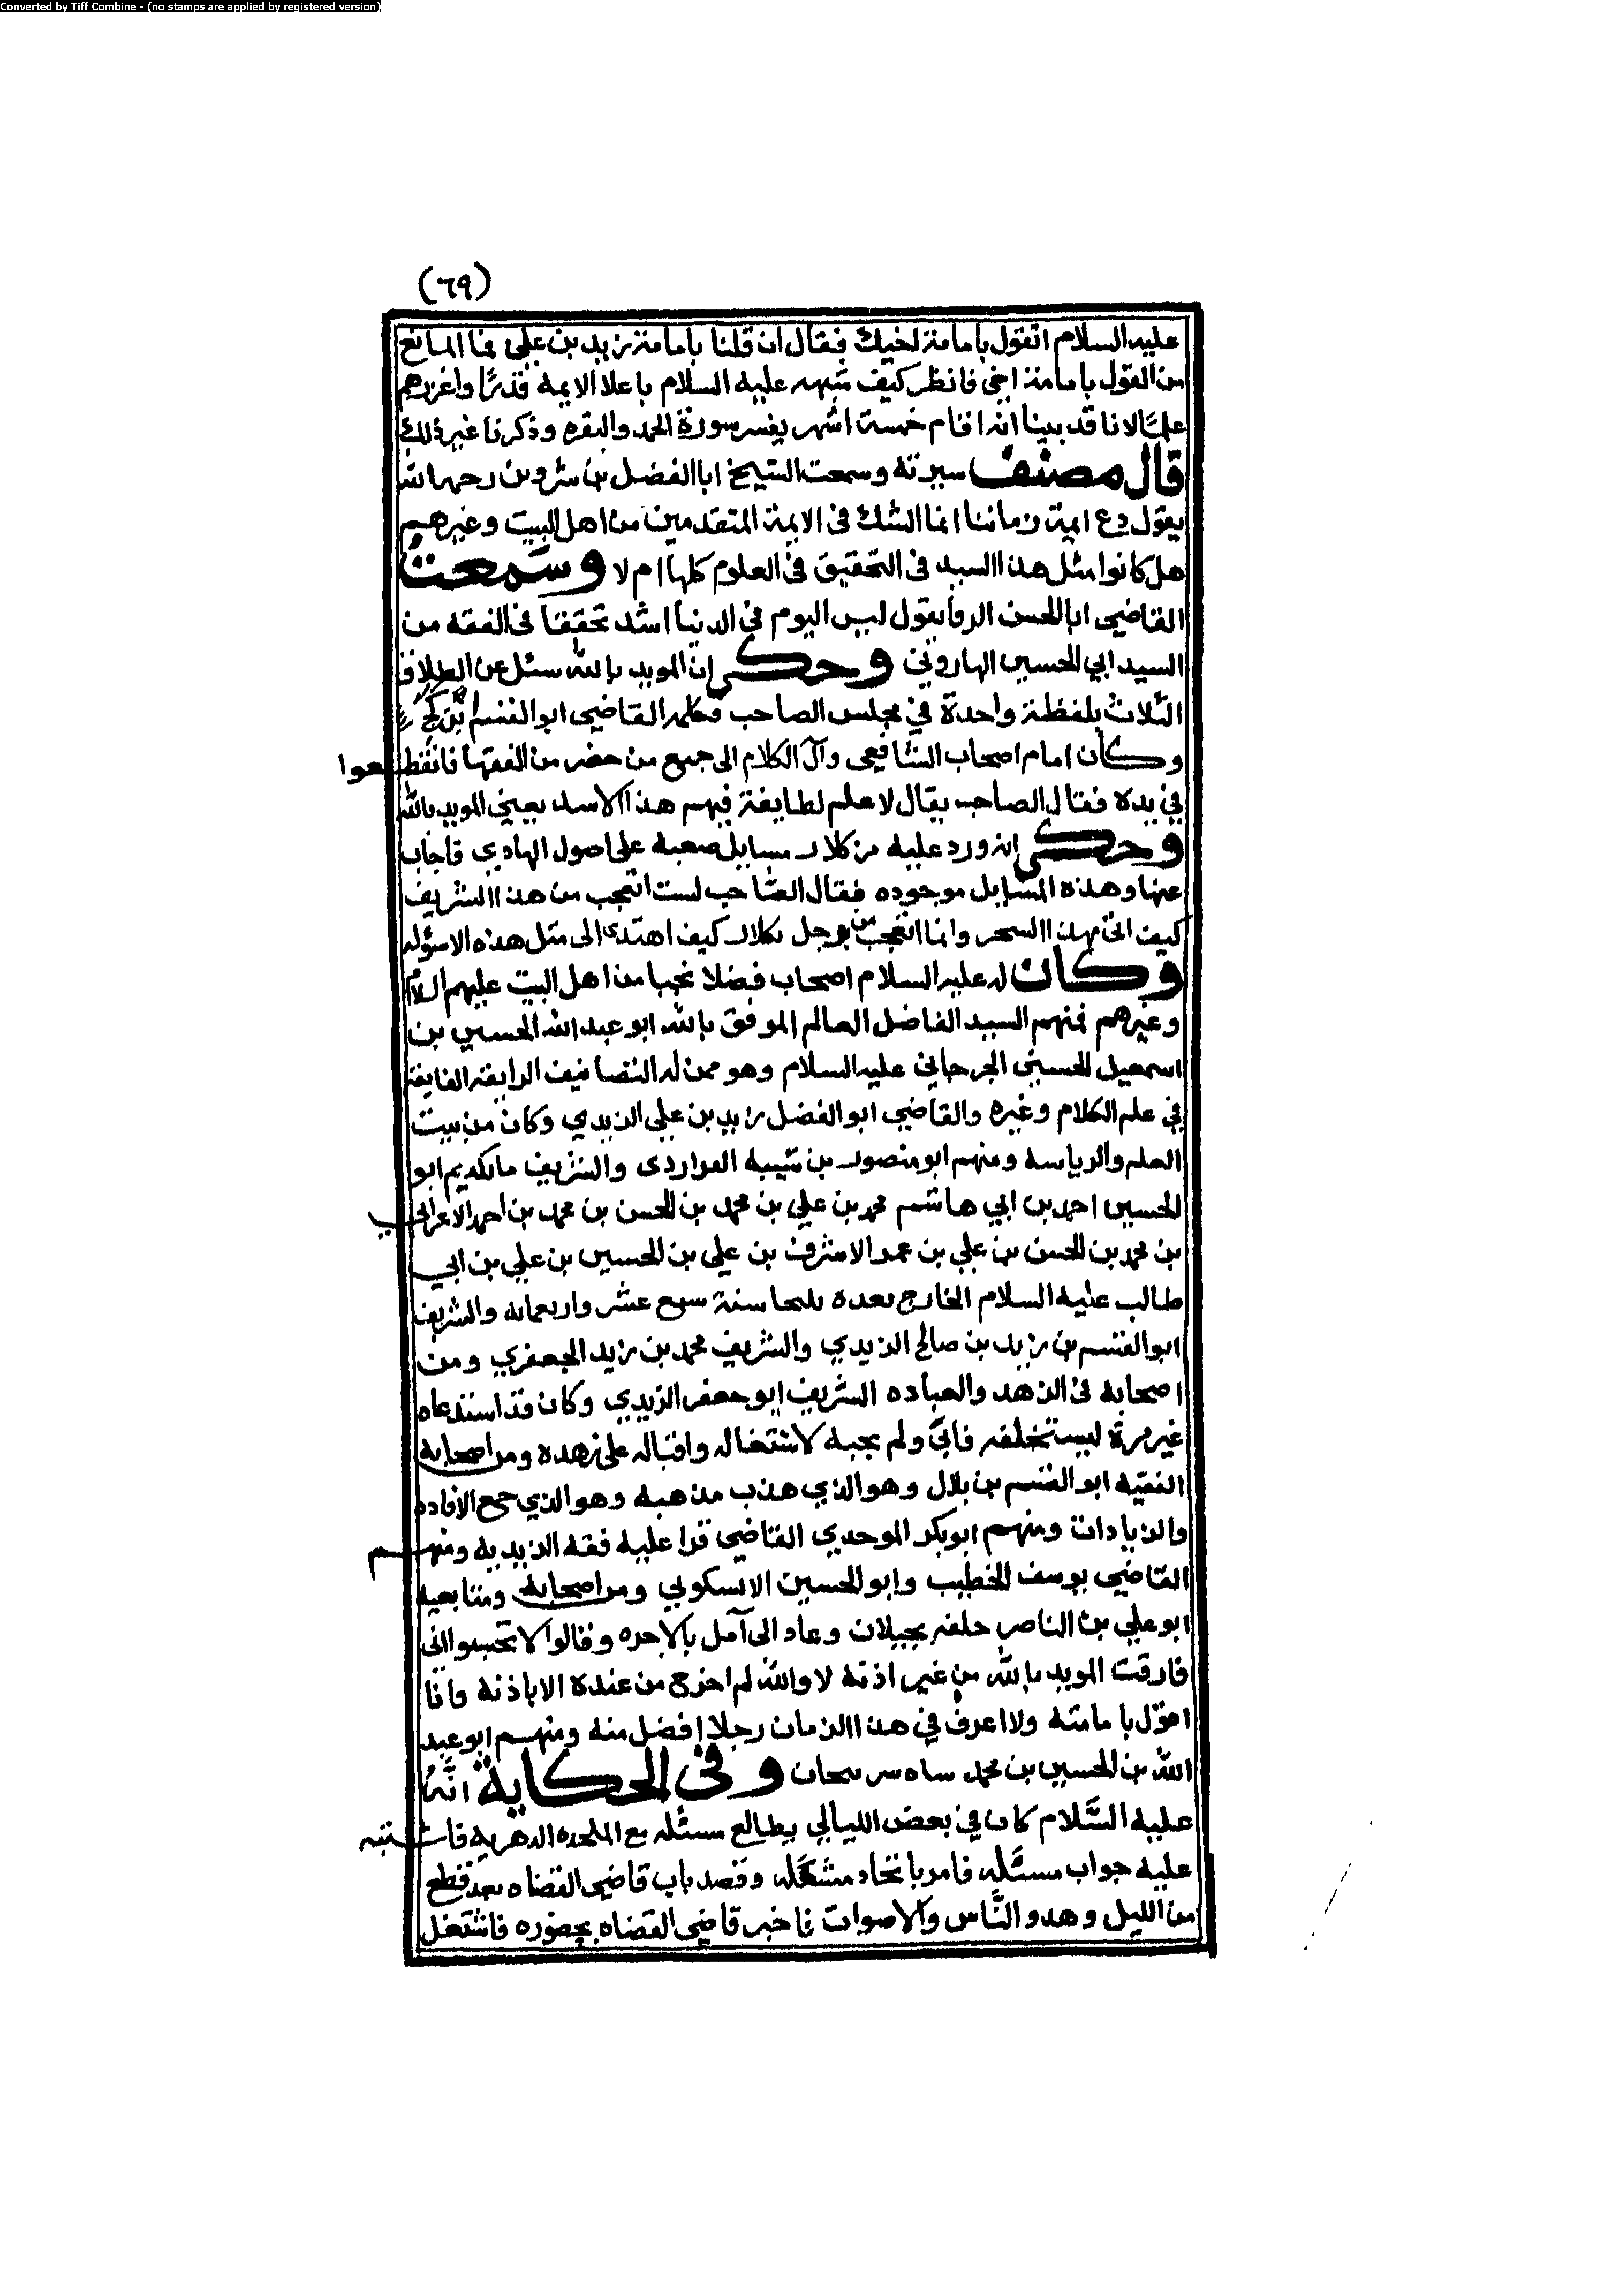 Converted by Tiff Combine - (no stamps are applied by registered version)
(٦٩)
عليه السلام اتقول بامامة اخيك فقال ان قلنا بامامة زيد بن علي فما المانع
من القول بامامة اخي فانظر كيف شبهه عليه السلام باعلا الايمه قدرًا واغزرهم
علمًا لانا قد بينا انه اقام خمسة اشهر يفسر سورة الحمد والبقره وذكرنا غير ذلك
قال مصنف سيرته وسمعت الشيخ ابا الفضل بن شروين رحمه الله
يقول دع ايمة زماننا انما الشك في الايمة المتقدمين من اهل البيت وغيرهم
هل كانوا مثل هذا السيد في التحقيق في العلوم كلها ام لا وسمعت
القاضي ابا الحسن الرفا يقول ليس اليوم في الدنيا اشد تحقيقا في الفقه من
السيد ابي الحسين الهاروني وحكى ان المويد بالله سئل عن الطلاق
الثلاث بلفظة واحدة في مجلس الصاحب فكلمه القاضي ابو القسم بن كج
وكان امام اصحاب الشافعي وآل الكلام الى جميع من حضر من الفقها فانقطعوا
في يده فقال الصاحب يقال لا علم لطايفة فيهم هذا الاسد يعني المويد بالله
وحكى انه ورد عليه من كلار مسايل صعبة على اصول الهادي فاجاب
عنها وهذه المسايل موجوده فقال الصاحب لست اتعجب من هذا الشريف
كيف اتى بهذا السحر وانما اتعجب من رجل بكلار كيف اهتدى الى مثل هذه الاسؤله
وكان له عليه السلام اصحاب فضلا نجبا من اهل البيت عليهم السلام
وغيرهم فمنهم السيد الفاضل العالم الموفق بالله ابو عبد الله الحسين بن
اسمعيل الحسيني الجرجاني عليه السلام وهو ممن له التصانيف الرايقة الفايقة
في علم الكلام وغيره والقاضي ابو الفضل زيد بن علي الزيدي وكان من بيت
العلم والرياسه ومنهم ابو منصور بن شيبه الفراردى والشريف مانكديم ابو
الحسين احمد بن ابي هاشم محمد بن علي بن محمد بن الحسن بن محمد بن احمد الاعرابي
بن محمد بن الحسن بن علي بن عمر الاشرف بن علي بن الحسين بن علي بن ابي
طالب عليه السلام الخارج بعده بلنجا سنة سبع عشر واربعمايه والشريف
ابو القسم بن زيد بن صالح الزيدي والشريف محمد بن زيد الجعفري ومن
اصحابه في الزهد والعباده الشريف ابو جعفر الزيدي وكان قد استدعاه
غير مرة ليستخلفه فابى ولم يجبه لاشتغاله واقباله على زهده ومن اصحابه
الفقيه ابو القسم بن بلال وهو الذي هذب مذهبه وهو الذي جمع الافاده
والزيادات ومنهم ابو بكر الموحدي القاضي قرا عليه فقه الزيديه ومنهم
القاضي يوسف الخطيب وابو الحسين الابسكوني ومن اصحابه ومتابعيه
ابو علي بن الناصر خلفه بجيلان وعاد الى آمل بالاجره وقالوا لا تحسبوا اني
فارقت المويد بالله من غير اذنه لا والله لم اخرج من عنده الا باذنه وانا
اقول بامامته ولا اعرف في هذا الزمان رجلا افضل منه ومنهم ابو عبد
الله بن الحسين بن محمد ساه سر بيحان وفي الحكاية انه
عليه السلام كان في بعض الليالي يطالع مسئله مع الملحده الدهريه فاشتبه
عليه جواب مسئله فامر باتخاد مشعله وقصد باب قاضي القضاه بعد قطع
من الليل وهدو الناس والاصوات فاخبر قاضي القضاه بحضوره فاشتغل